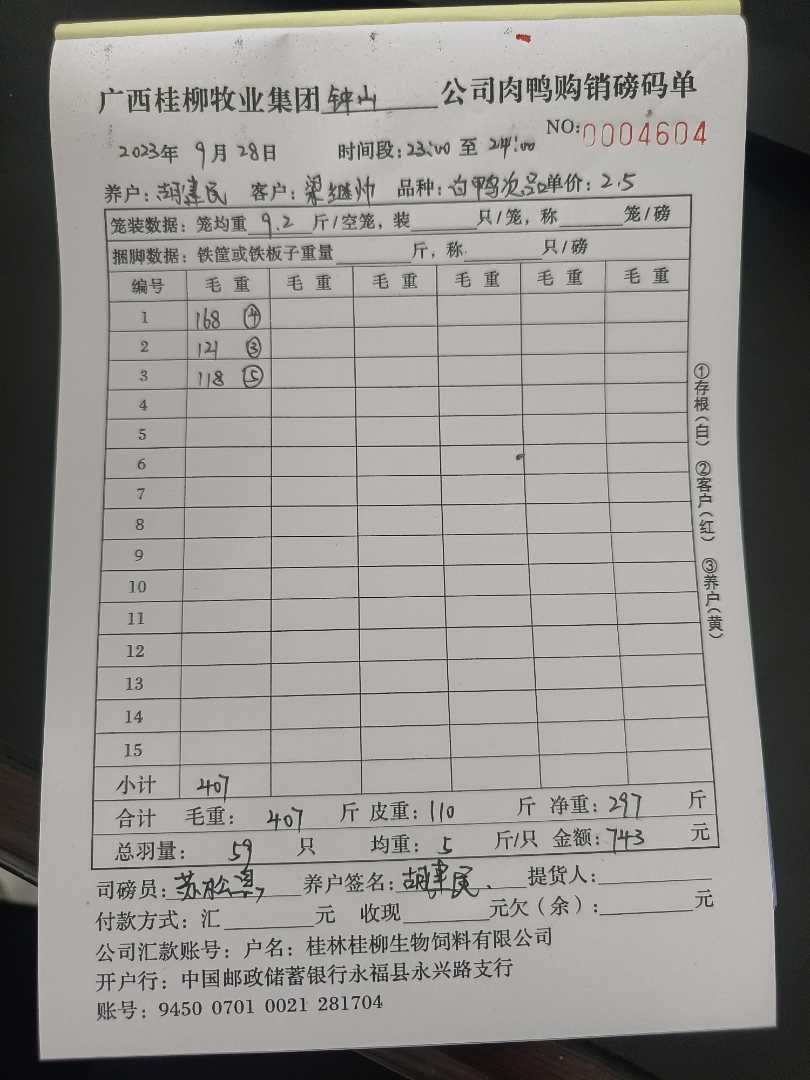 广西桂柳牧业集团钟山公司肉鸭购销磅码单
NO:0004604
2023年 9月28日 时间段:23:00 至 24:00
养户:胡建民 客户:梁继帅 品种:白鸭次品 单价:2.5
笼装数据:笼均重 9.2 斤/空笼,装 只/笼,称 笼/磅
捆脚数据:铁筐或铁板子重量 斤,称 只/磅
编号 毛重 毛重 毛重 毛重 毛重 毛重
1 168 ④
2 121 ③
3 118 ⑤
4
5
6
7
8
9
10
11
12
13
14
15
小计 407
合计 毛重: 407 斤 皮重:110 斤 净重:297 斤
总羽量: 59 只 均重: 5 斤/只 金额:743 元
司磅员:苏松 养户签名:胡建民 提货人:
付款方式:汇 元 收现 元欠(余): 元
公司汇款账号:户名:桂林桂柳生物饲料有限公司
开户行:中国邮政储蓄银行永福县永兴路支行
账号:9450 0701 0021 281704
①存根(白) ②客户(红) ③养户(黄)